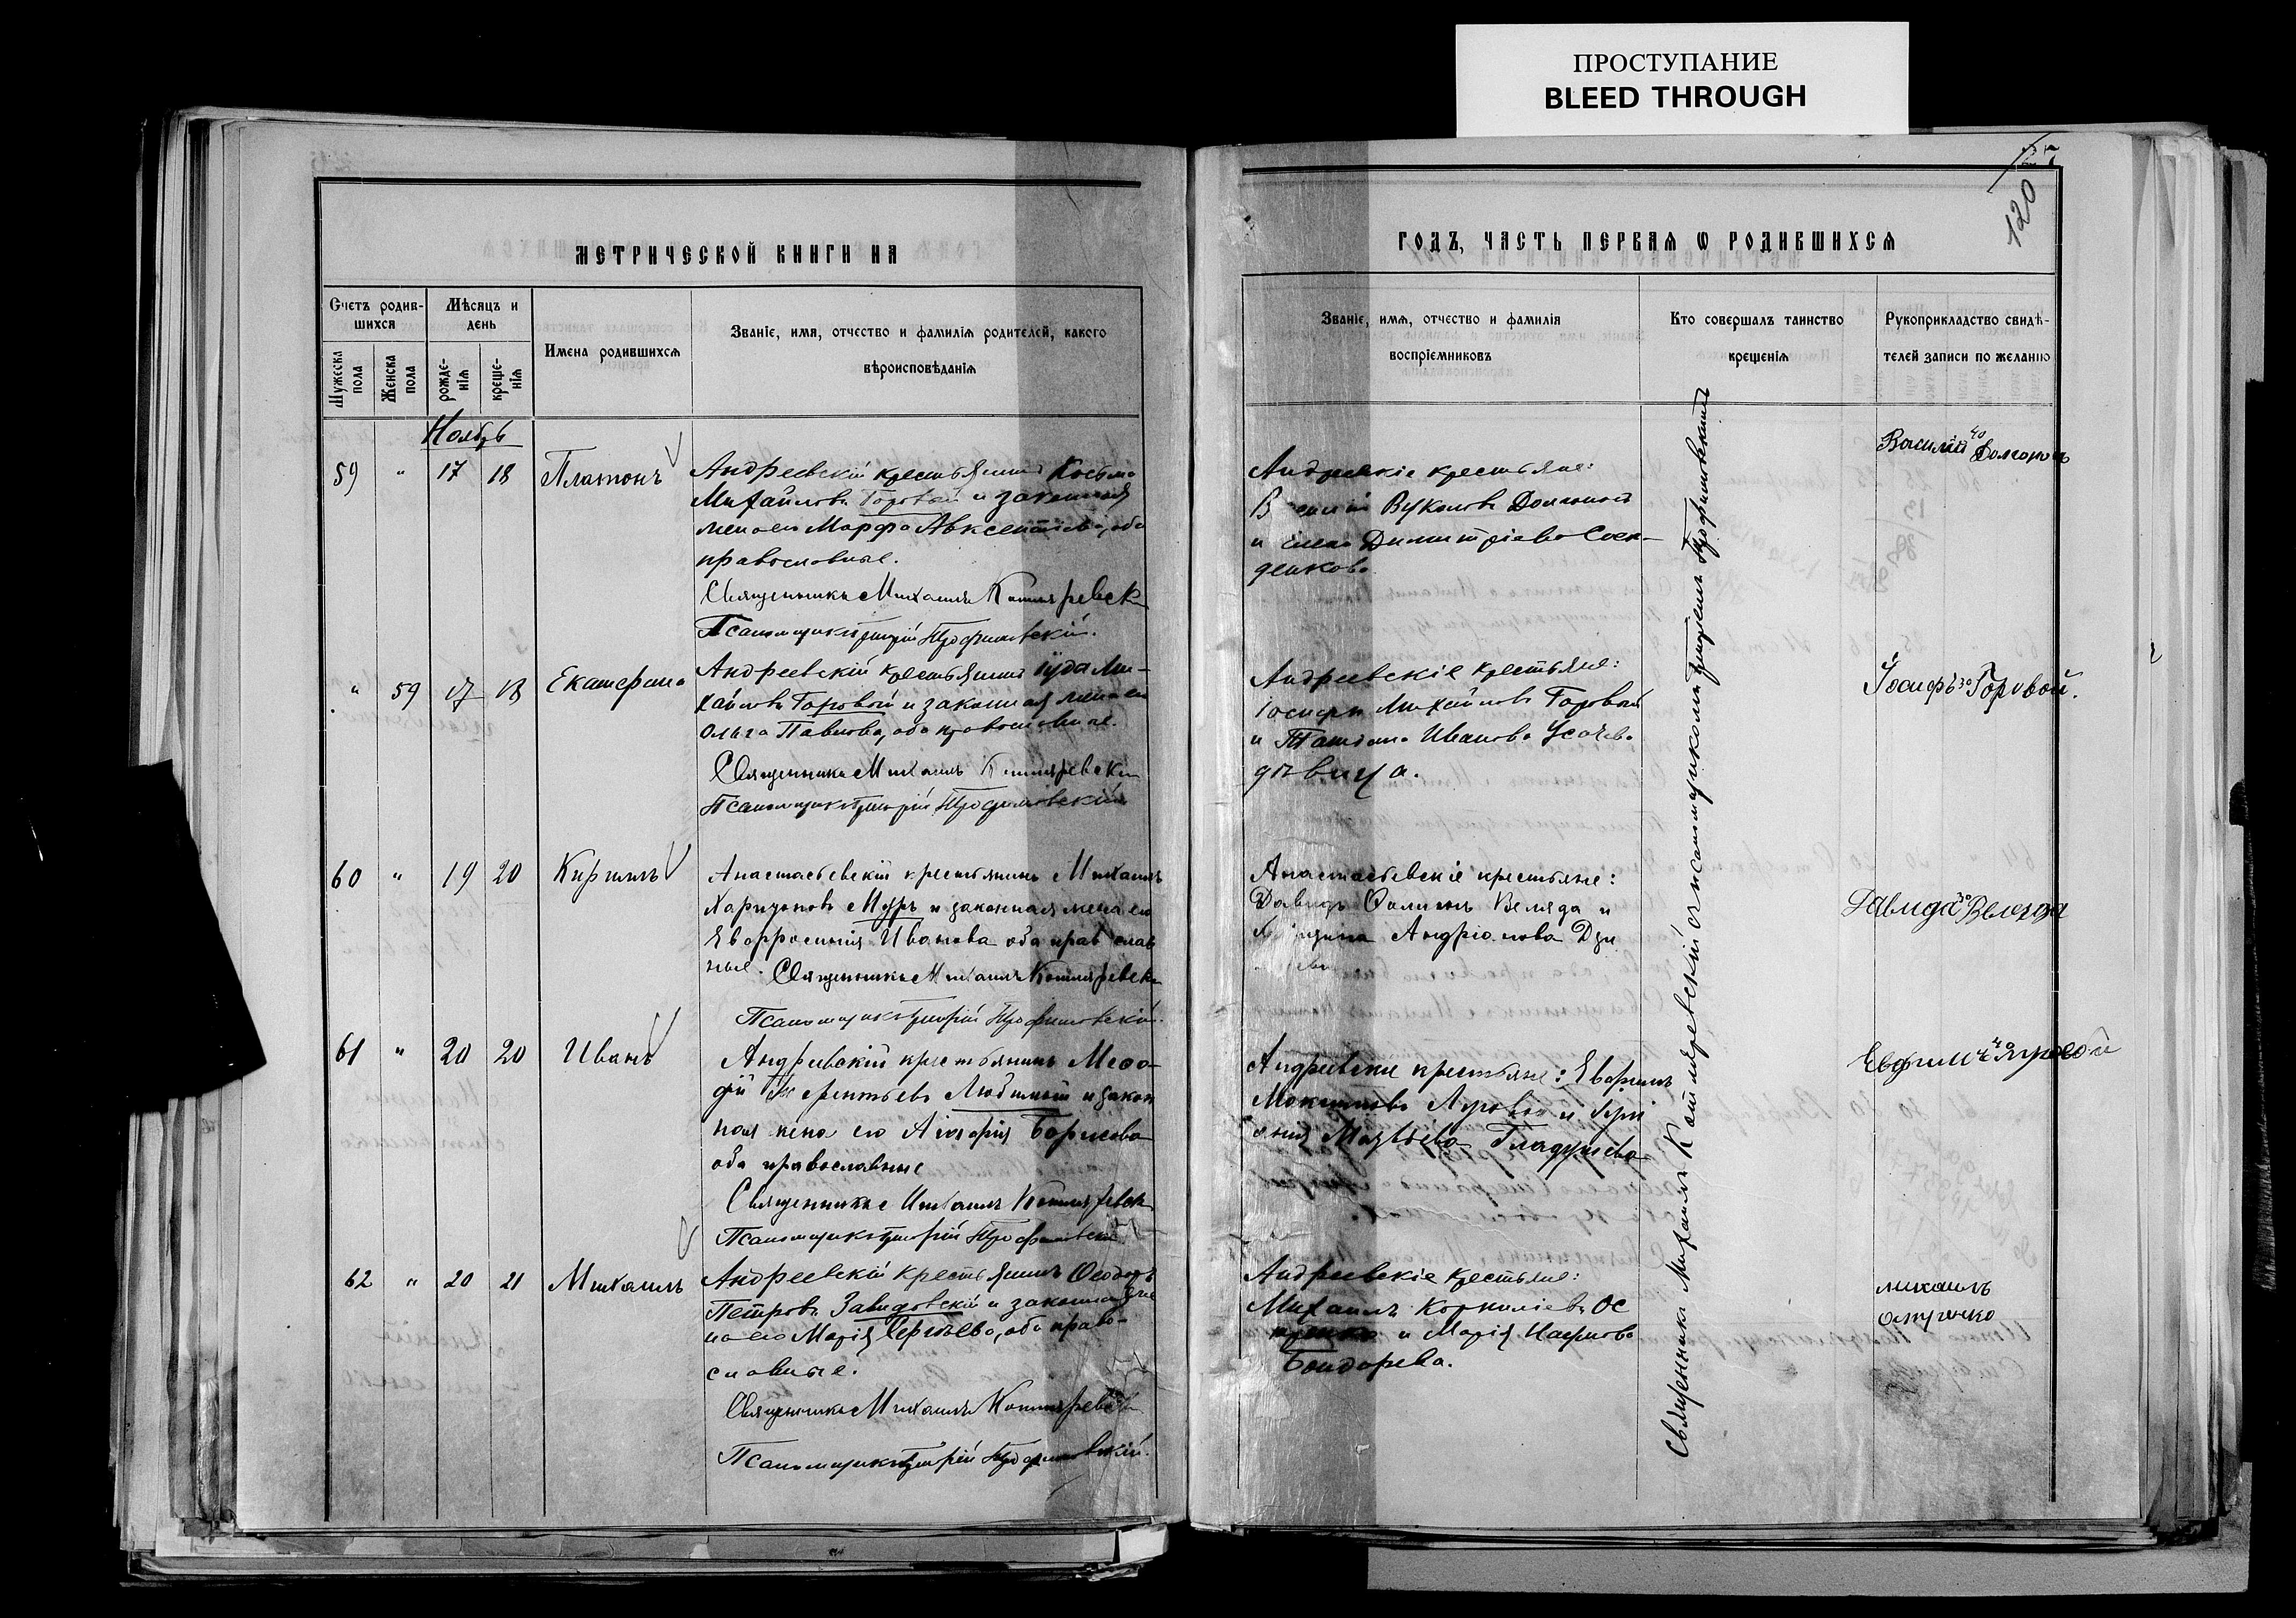 ПРОСТУПАНИЕ
BLEED THROUGH
120
МЕТРИЧЕСКОЙ КНИГИ НА
ГОДЪ, ЧАСТЬ ПЕРВАЯ Ѡ РОДИВШИХСЯ
Счетъ родив-
шихся
Мѣсяцъ и
день
Мужеска
пола
Женска
пола
рожде-
нія
креще-
нія
Имена родившихся
Званіе, имя, отчество и фамилія родителей, какого
вѣроисповѣданія
Званіе, имя, отчество и фамилія
воспріемниковъ
Кто совершалъ таинство
крещенія
Рукоприкладство свидѣ-
телей записи по желанію
Ноябрь
59 " 17 18 Платонъ
Андреевскій крестьянинъ Косьма
Михайловъ Горовой и законная
жена его Марфа Авксентіева, оба
православные.
Священникъ Михаилъ Котляревскій
Псаломщикъ Григорій Трофимовскій.
Андреевскіе крестьяне:
Вуколовъ
и Димитріева
Василій
" 59 17 18 Екатерина
Андреевскій крестьянинъ Іуда Ми-
хайловъ Горовой и законная жена его
Ольга Павлова, оба православные.
Священникъ Михаилъ Котляревскій
Псаломщикъ Григорій Трофимовскій
Андреевскіе крестьяне:
Іосифъ Михайловъ Горовой
и Татіана Иванова Усачева
дѣвица.
Іосифъ Горовой.
60 " 19 20 Кириллъ
Анастасьевскій крестьянинъ Михаилъ
Харитоновъ Муръ и законная жена его
Евфросинія Иванова оба православ
ные. Священникъ Михаилъ Котляревскій
Псаломщикъ Григорій Трофимовскій.
Анастасьевскіе крестьяне:
Давидъ Веляда и
Андріанова
Давидъ
61 " 20 20 Иванъ
Андреевскій крестьянинъ Меѳо-
дій Терентьевъ Любимый и закон
ная жена его Агафія Борисова
оба православные
Священникъ Михаилъ Котляревскій
Псаломщикъ Григорій Трофимовскій
Андреевскіе крестьяне: Евфимъ
Максимовъ Яровой и
Матвѣева Гладушева
Евфимъ Яровой
62 " 20 21 Михаилъ
Андреевскій крестьянинъ Ѳеодоръ
Петровъ Завидовскій и законная же
на его Марія Сергѣева, оба право-
славные.
Священникъ Михаилъ Котляревскій
Псаломщикъ Григорій Трофимовскій.
Андреевскіе крестьяне:
Михаилъ Корниліевъ
и Марія
Бондарева.
михаилъ
Священникъ Михаилъ Котляревскій съ псаломщикомъ Григоріемъ Трофимовскимъ